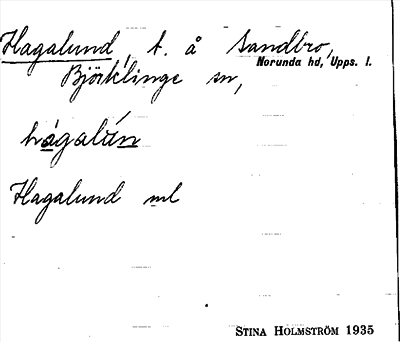 Hagalund, t. å Sandbro,
Norunda hd, Upps. l.
Björklinge sn,
hágalún
Hagalund ml
STINA HOLMSTRÖM 1935